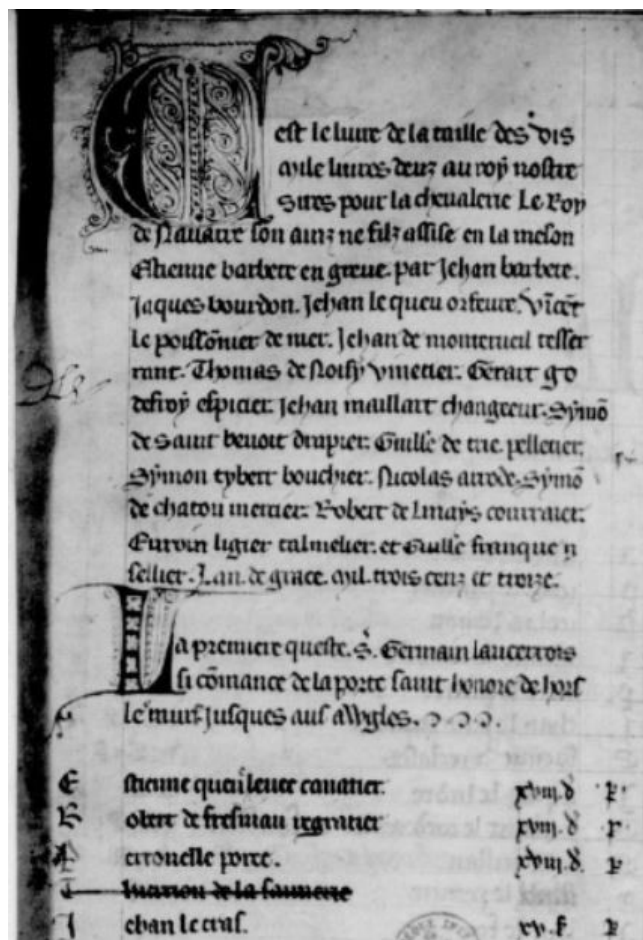 Cest le liure de la taille des dis
mile liures deuz au roy nostre
sires pour la cheualerie Le Roy
de Nauarre son ainz ne filz assise en la meson
Estienne barbete en greue. par Jehan barbete.
Jaques bourdon. Jehan le queu orfeure. Vīcēt
le poissōnier de mer. Jehan de monterueil tesser
rant. Thomas de Noisy vinetier. Gerart go
defroy espicier. Jehan maillart changeeur. Symō
de saint benoit drapier. Guillē de trie pelletier.
Symon tybert bouchier. Nicolas arrode. Symō
de chatou mercier. Robert de linays courraier.
Eurouin ligier talmelier. et Guillē franque n
sellier. Lan de grace. mil. trois cenz et treize.
La premiere queste. S. Germain laucerrois
si cōmance de la porte saint honore de hors
le murs jusques aus aWgles.
Estienne leuer cauatier. xviij. d p
Robert de fresniau regratier xviij. d p
Perronelle poree. xviij. d. p
de la saunerie
Jehan le cras. xv. s p